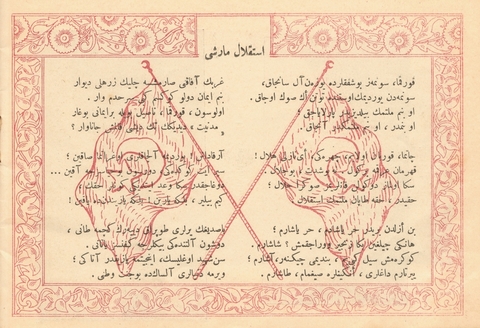 استقلال مارشی
قورقما، سونمز بو شفقلرده یوزن آل سانجاق،
سونمه‌دن یوردیمك اوستنده توتن اك صوك اوجاق .
او بنم ملتمك ییلدیزیدر پارلایاجق ؛
او بنمدر ، او بنم ملتمكدر آنجاق .
چاتما، قوربان اولایم، چهره‌كی ای نازلی هلال !
قهرمان عرقمه بر كول... نه بو شدت ، بو جلال ؟
سكا اولماز دوكولن قانلریمز صوكرا حلال !
حقیدر ، حقه طاپان ملتمك استقلال
بن ازلدن بریدر حر یاشادم ، حر یاشارم ؛
هانكی چیلغین بكا زنجیر ووراجقمش ؟ شاشارم .
كوكره‌مش سیل كبی‌یم ، بندیمی چیكنر، آشارم ؛
ییرتارم داغلری ، انكینلره صیغمام ، طاشارم .
غربك آفاقنی صارمشسه چلیك زرهلی دیوار
بنم ایمان دولو كوكسم كبی سرحدم وار .
اولوسون ، قورقما ، ناصل بویله برایمانی بوغار
« مدنیت » دیدیكك تك دیشی قالمش جاناوار ؟
آرقاداش ! یوردیمه آلچاقلری اوغراتما صاقین ؛
سپر ایت كوده‌كی ، دورسون بو حیاسزجه آقین ...
دوغاجقدر سكا وعد ایتدیكی كونلر حقك
كیم بیلیر ، بلكه یارین ! بلكه یاریندن ده یاقین !
باصدیغك یرلری طوپراق دیه‌رك كچمه طانی ،
دوشون آلتنده‌كی بیكلرجه كفنسز یاتانی .
سن شهید اوغلیسك ، اینجیتمه یازیقدر آتاكی ؛
ویرمه دنیالری آلسه‌ك ده بوجنت وطنی .